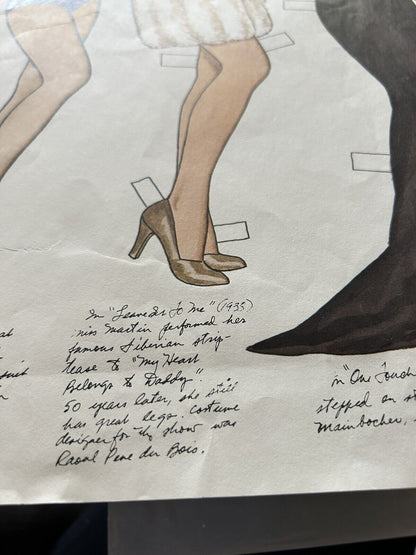 In "Leave It To Me" (1935)
Miss Martin performed her
famous Siberian strip-
tease to "My Heart
Belongs to Daddy".
50 years later, she still
has great legs. Costume
designer for the show was
Raoul Pene du Bois.
in "One Touch
stepped on
Mainbocher,